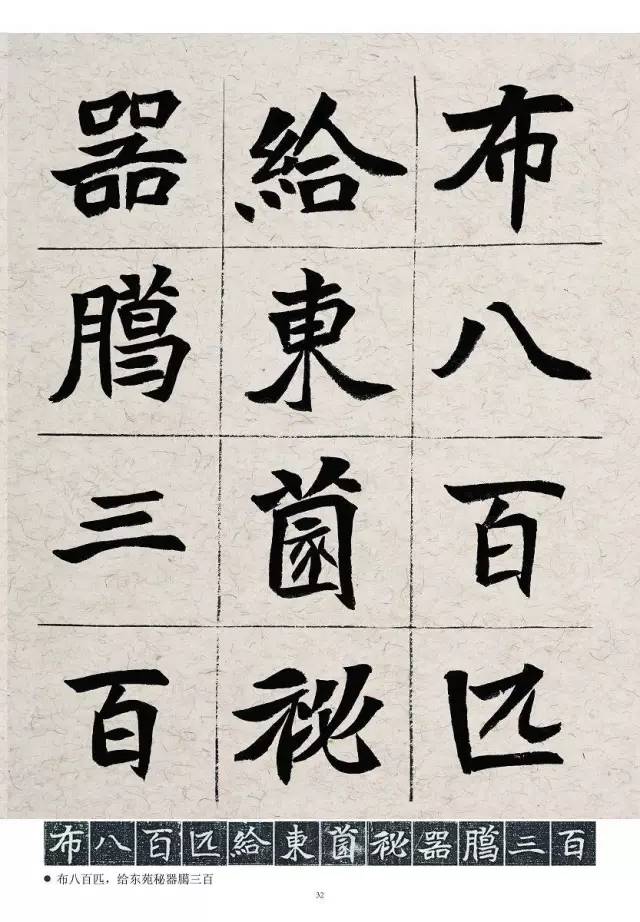 布八百匹
給東薗祕
器三百
布八百匹給東薗祕器三百
布八百匹，给东苑秘器三百
32